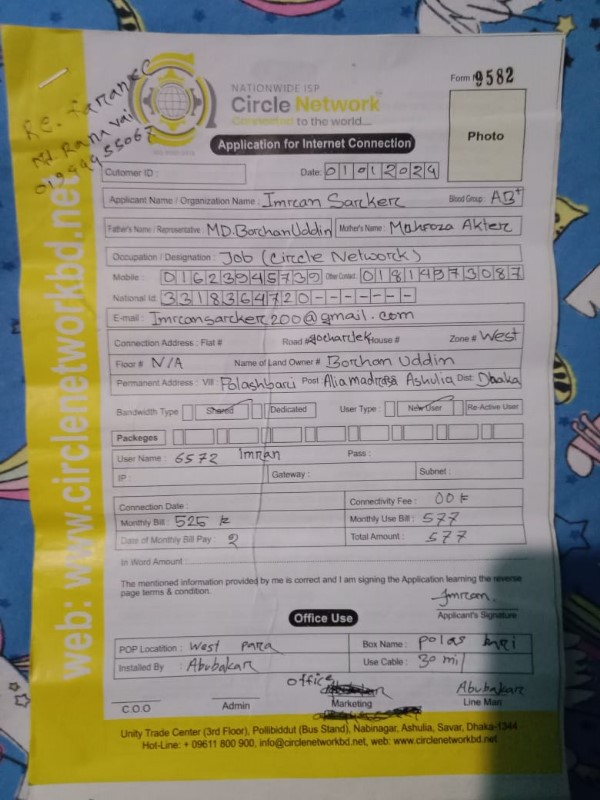 Re. Farance
Md. Rana vai
01949955067
web: www.circlenetworkbd.net
NATIONWIDE ISP
Circle Network
Connected to the world....
Form No 9582
Application for Internet Connection
Photo
Cutomer ID :
Date: 01 01 2024
Applicant Name / Organization Name : Imran Sarker Blood Group : AB+
Father's Name / Representative : MD. Borhan Uddin Mother's Name : Mahroza Akter
Occupation / Designation : Job (Circle Network)
Mobile : 01623945739 Othe Contact 01814973087
National Id 3318364720-------
E-mail : Imransarcker200@gmail.com
Connection Address : Flat # Road # House # Zone # West
Floor # N/A Name of Land Owner # Borhan Uddin
Permanent Address : Vill : Polashbari Post Aliamadrasa Ashulia Dist: Dhaka
Bandwidth Type Shared Dedicated User Type : New User Re-Active User
Packeges
User Name : 6572 Imran Pass :
IP : Gateway : Subnet :
Connection Date : Connectivity Fee : 00 ৳
Monthly Bill : 525 ৳ Monthly Use Bill : 577
Date of Monthly Bill Pay : 2 Total Amount : 577
In Word Amount :
The mentioned information provided by me is correct and I am signing the Application learning the reverse
page terms & condition.
Imran.
Applicant's Signature
Office Use
POP Locatition : West Para Box Name : Polas bari
Installed By : Abubakar Use Cable : 30 mil
Office Abubakar
C.O.O Admin Marketing Line Man
Unity Trade Center (3rd Floor), Pollibiddut (Bus Stand), Nabinagar, Ashulia, Savar, Dhaka-1344
Hot-Line: + 09611 800 900, info@circlenetworkbd.net, web: www.circlenetworkbd.net